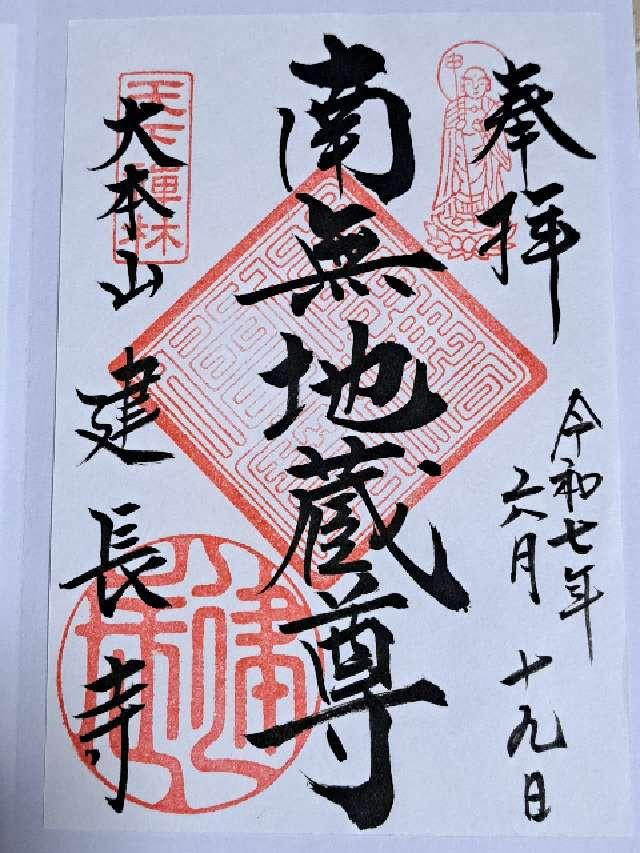 奉拝
令和七年
六月 十九日
南無地蔵尊
天下禅林
大本山 建長寺